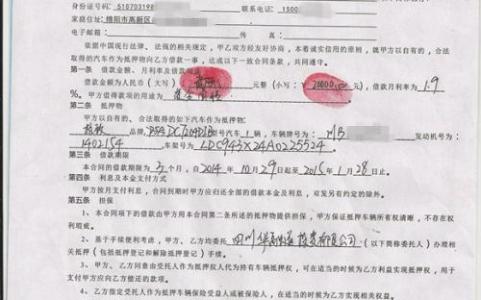 身份证号码：51070319 联系电话：1500
家庭住址：绵阳市高新区
电子邮箱： 传真：
依据中国现行法律、法规的相关规定，甲乙双方经友好协商，本着诚实信用的原则，就甲方以自有的、合法
取得的汽车作为抵押物向乙方借款一事，达成以下一致合同条款，共同遵守。
第一条 借款金额、月利率及借款用途
借款金额为人民币（大写） 元整（小写： 28000.00 元），借款月利率为1.9
%。甲方借得款项的用途为
第二条 抵押物
甲方以自有的、合法取得的如下汽车作为抵押物：
品牌， 型号汽车 1 辆，车辆牌号为：川B 发动机号为：
1402154 车架号为 LDC943X24A0225524
第三条 借款期限
本合同的借款期限为 3 个月，自2014年10月29日起至2015年1月28日止。
第四条 利息及本金支付方式
甲方按月支付利息，合同到期时甲方应归还全部的借款本金及利息，双发另有约定的除外。
第五条 担保
1、本合同项下的借款由甲方用本合同第二条所述的抵押物提供担保，甲方保证抵押车辆所有权清晰，不存在权
利瑕疵。
2、基于手续便利考虑，甲方、乙方均委托 四川 投资有限公司（以下简称委托人）办理相
关抵押（包括抵押登记和解除抵押登记）手续。
3、甲方、乙方同意由受托人作为抵押权人代为持有车辆抵押权，可在适当的时候为乙方利益实现抵押权，用于
支付甲方应向乙方偿还的款项。
4、乙方指定受托人作为抵押车辆保险受益人或被保险人，在适当的时候为乙方利益实现相关权